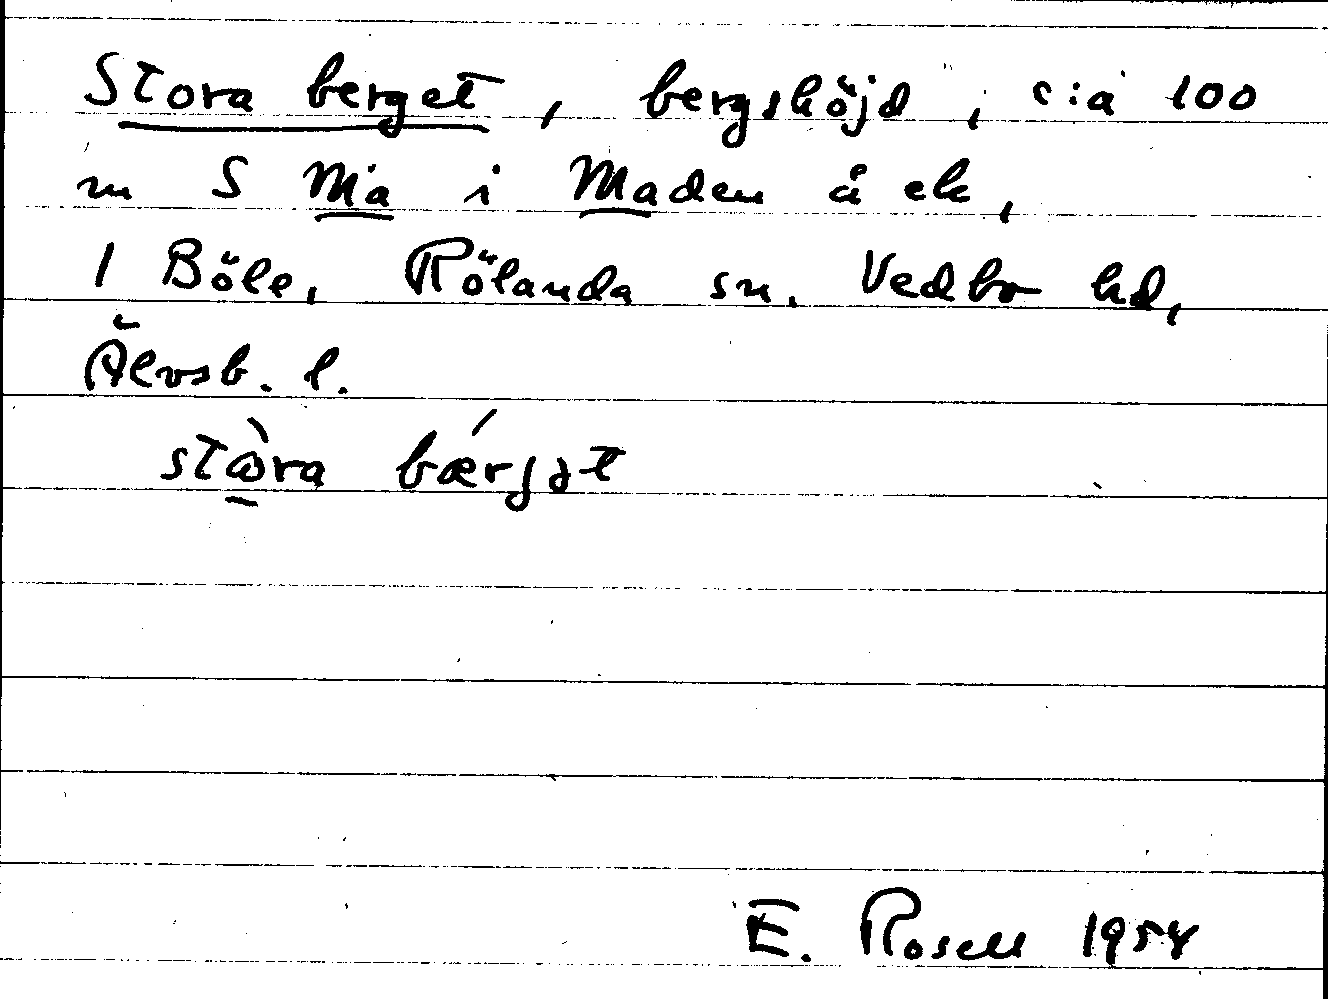 Stora berget, bergshöjd, c:a 100
m S Ma i Maden å ek,
1 Böle, Rölanda sn. Vedbo hd,
Älvsb. l.
stὼra bǽrjət
E. Rosell 1954